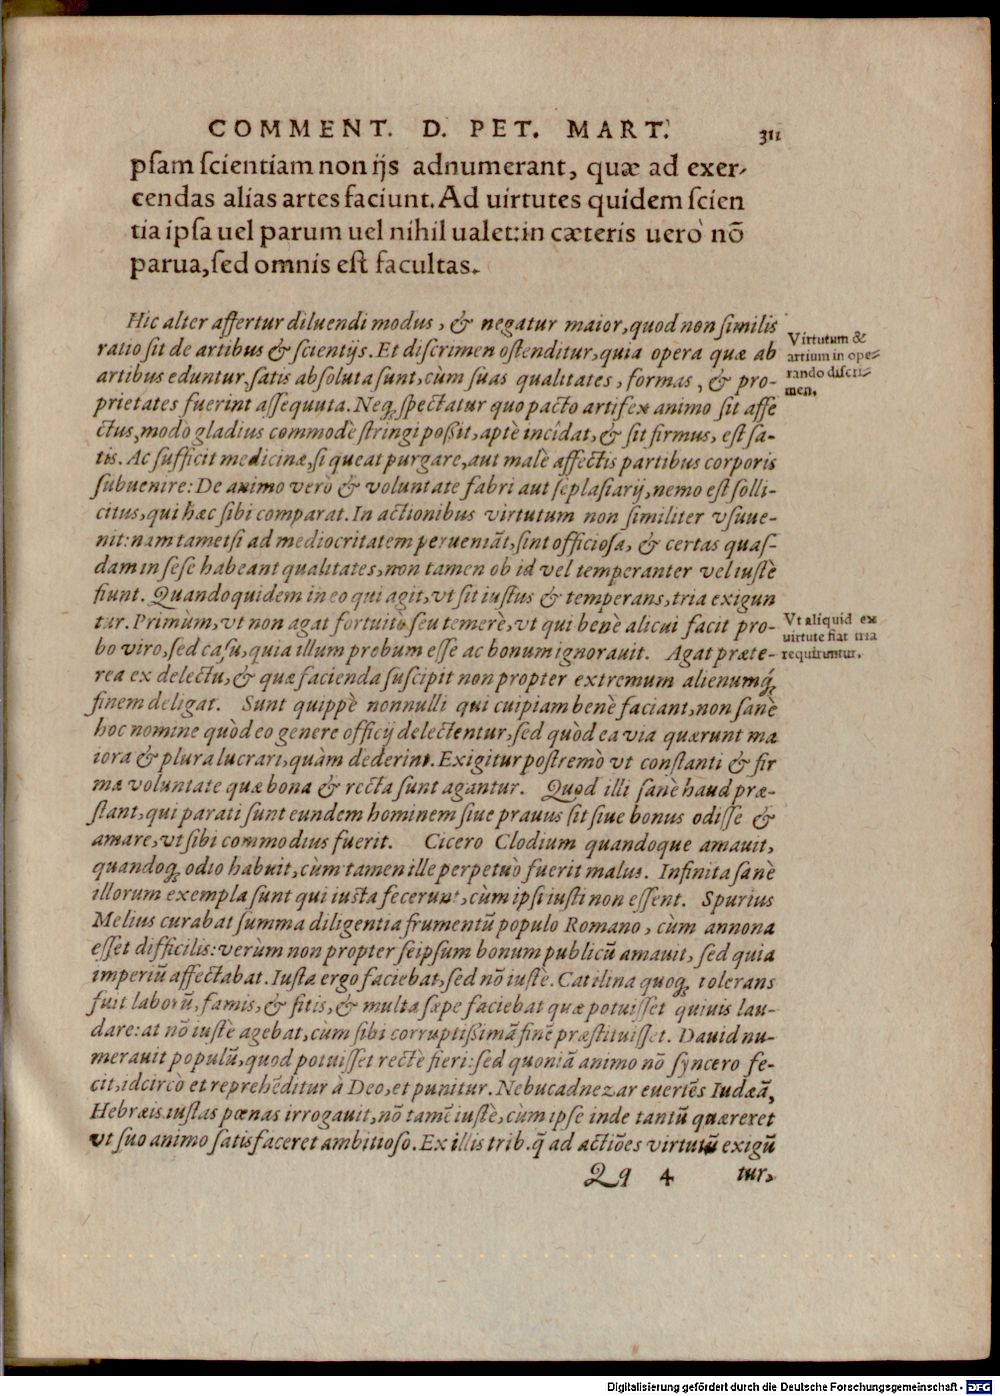 COMMENT. D. PET. MART. 311
psam scientiam non ijs adnumerant, quæ ad exer-
cendas alias artes faciunt. Ad uirtutes quidem scien
tia ipsa uel parum uel nihil ualet: in cæteris uerò nõ
parua, sed omnis est facultas.
Hic alter affertur diluendi modus, & negatur maior, quod non similis
ratio sit de artibus & scientijs. Et discrimen ostenditur, quia opera quæ ab
artibus eduntur, satis absoluta sunt, cùm suas qualitates, formas, & pro-
prietates fuerint assequuta. Neq; spectatur quo pacto artifex animo sit affe
ctus, modò gladius commodè stringi poßit, aptè incîdat, & sit firmus, est sa-
tis. Ac sufficit medicinæ, si queat purgare, aut malè affectis partibus corporis
subuenire: De animo verò & voluntate fabri aut seplasiarij, nemo est solli-
citus, qui hæc sibi comparat. In actionibus virtutum non similiter vsuue-
nit: nam tametsi ad mediocritatem perueniãt, sint officiosa, & certas quas-
dam in sese habeant qualitates, non tamen ob id vel temperanter vel iustè
fiunt. Quandoquidem in eo qui agit, vt sit iustus & temperans, tria exigun
tur. Primùm, vt non agat fortuitò seu temerè, vt qui benè alicui facit pro-
bo viro, sed casu, quia illum probum esse ac bonum ignorauit. Agat præte-
rea ex delectu, & quæ facienda suscipit non propter extremum alienumq́;
finem deligat. Sunt quippè nonnulli qui cuipiam benè faciant, non sanè
hoc nomine quòd eo genere officij delectentur, sed quòd ea via quærunt ma
iora & plura lucrari, quàm dederint. Exigitur postremò vt constanti & fir
ma voluntate quæ bona & recta sunt agantur. Quod illi sanè haud præ-
stant, qui parati sunt eundem hominem siue prauus sit siue bonus odisse &
amare, vt sibi commodius fuerit. Cicero Clodium quandoque amauit,
quandoq; odio habuit, cùm tamen ille perpetuò fuerit malus. Infinita sanè
illorum exempla sunt qui iusta fecerunt, cùm ipsi iusti non essent. Spurius
Melius curabat summa diligentia frumentũ populo Romano, cùm annona
esset difficilis: verùm non propter seipsum bonum publicũ amauit, sed quia
imperiũ affectabat. Iusta ergo faciebat, sed nõ iustè. Catilina quoq; tolerans
fuit laborũ, famis, & sitis, & multa sæpe faciebat quæ potuisset quiuis lau-
dare: at nõ iustè agebat, cùm sibi corruptißimã finẽ præstituisset. Dauid nu-
merauit populũ, quod potuisset rectè fieri: sed quoniã animo nõ syncero fe-
cit, idcircò et reprehẽditur à Deo, et punitur. Nebucadnezar euertẽs Iudæã,
Hebræis iustas pœnas irrogauit, nõ tamẽ iustè, cùm ipse inde tantũ quæreret
vt suo animo satisfaceret ambitioso. Ex illis trib. q̃ ad actiões virtutũ exigũ
Qq 4 tur.
Virtutum &
artium in ope-
rando discri-
men.
Vt aliquid ex
uirtute fiat tria
requiruntur.
Digitalisierung gefördert durch die Deutsche Forschungsgemeinschaft - DFG